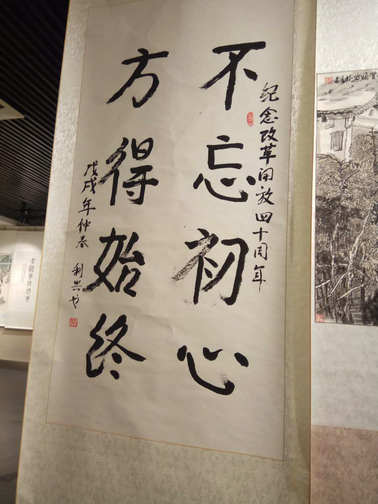 纪念改革开放四十周年
不忘初心
方得始终
戊戌年仲春 利兴书